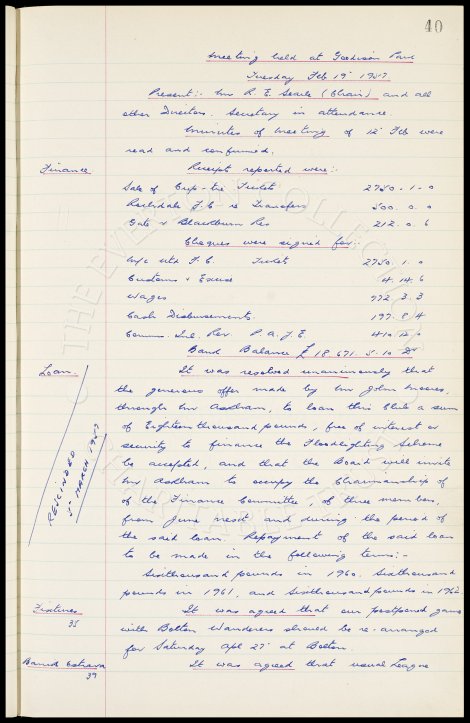 40
Meeting held at Goodison Park
Tuesday Feb 19th 1957
Present:- Mr R. E. Searle (Chair) and all
other Directors. Secretary in attendance.
Minutes of Meeting of 12th Feb were
read and confirmed.
Finance Receipts reported were:-
Sale of Cup-tie Tickets 2750 . 1 - 0
Rochdale F.C. re Transfers 500 . 0 . 0
Gate v Blackburn Res 212 . 0 . 6
Cheques were signed for:-
M/c Utd F.C. Tickets 2750 . 1 . 0
Customs & Excise 4 . 14 . 6
Wages 772 . 3 . 3
Cash Disbursements 197 . 8 . 4
Comms. Inl. Rev. P.A.Y.E. 410 . 12 . 0
Bank Balance £18,671 . 5 . 10 Dr
Loan. It was resolved unanimously that
the generous offer made by Mr John Moores,
through Mr Askham, to loan this Club a sum
of Eighteen thousand pounds, free of interest or
security to finance the Floodlighting Scheme
be accepted, and that the Board will invite
Mr Askham to occupy the Chairmanship of
of the Finance Committee, of three members,
from June next and during the period of
the said loan. Repayment of the said loan
to be made in the following terms:-
RESCINDED
5th MARCH 1957
Sixthousand pounds in 1960. Sixthousand
pounds in 1961. and Sixthousand pounds in 1962.
Fixtures It was agreed that our postponed game
35 with Bolton Wanderers should be re-arranged
for Saturday Apl 27th at Bolton.
39 It was agreed that usual League
THE EVERTON COLLECTION